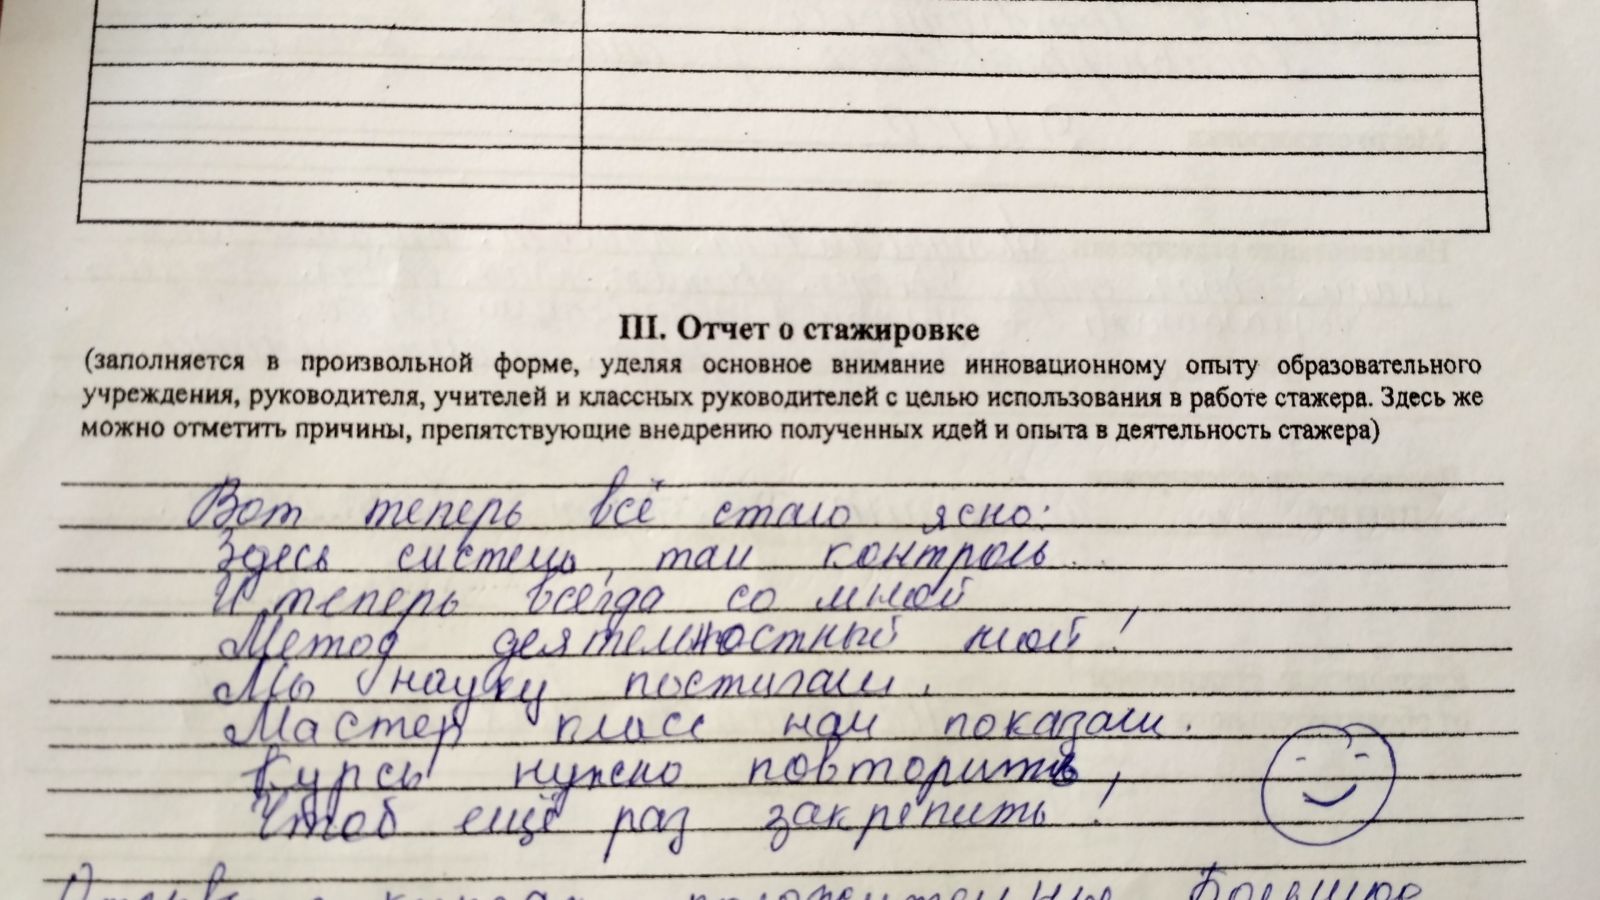 III. Отчет о стажировке
(заполняется в произвольной форме, уделяя основное внимание инновационному опыту образовательного
учреждения, руководителя, учителей и классных руководителей с целью использования в работе стажера. Здесь же
можно отметить причины, препятствующие внедрению полученных идей и опыта в деятельность стажера)
Вот теперь всё стало ясно:
Здесь система, там контроль.
И теперь всегда со мной,
Метод деятельностный мой!
Мы науку постигали.
Мастер класс нам показали.
Курсы нужно повторить,
Чтоб ещё раз закрепить!
положительные Большое